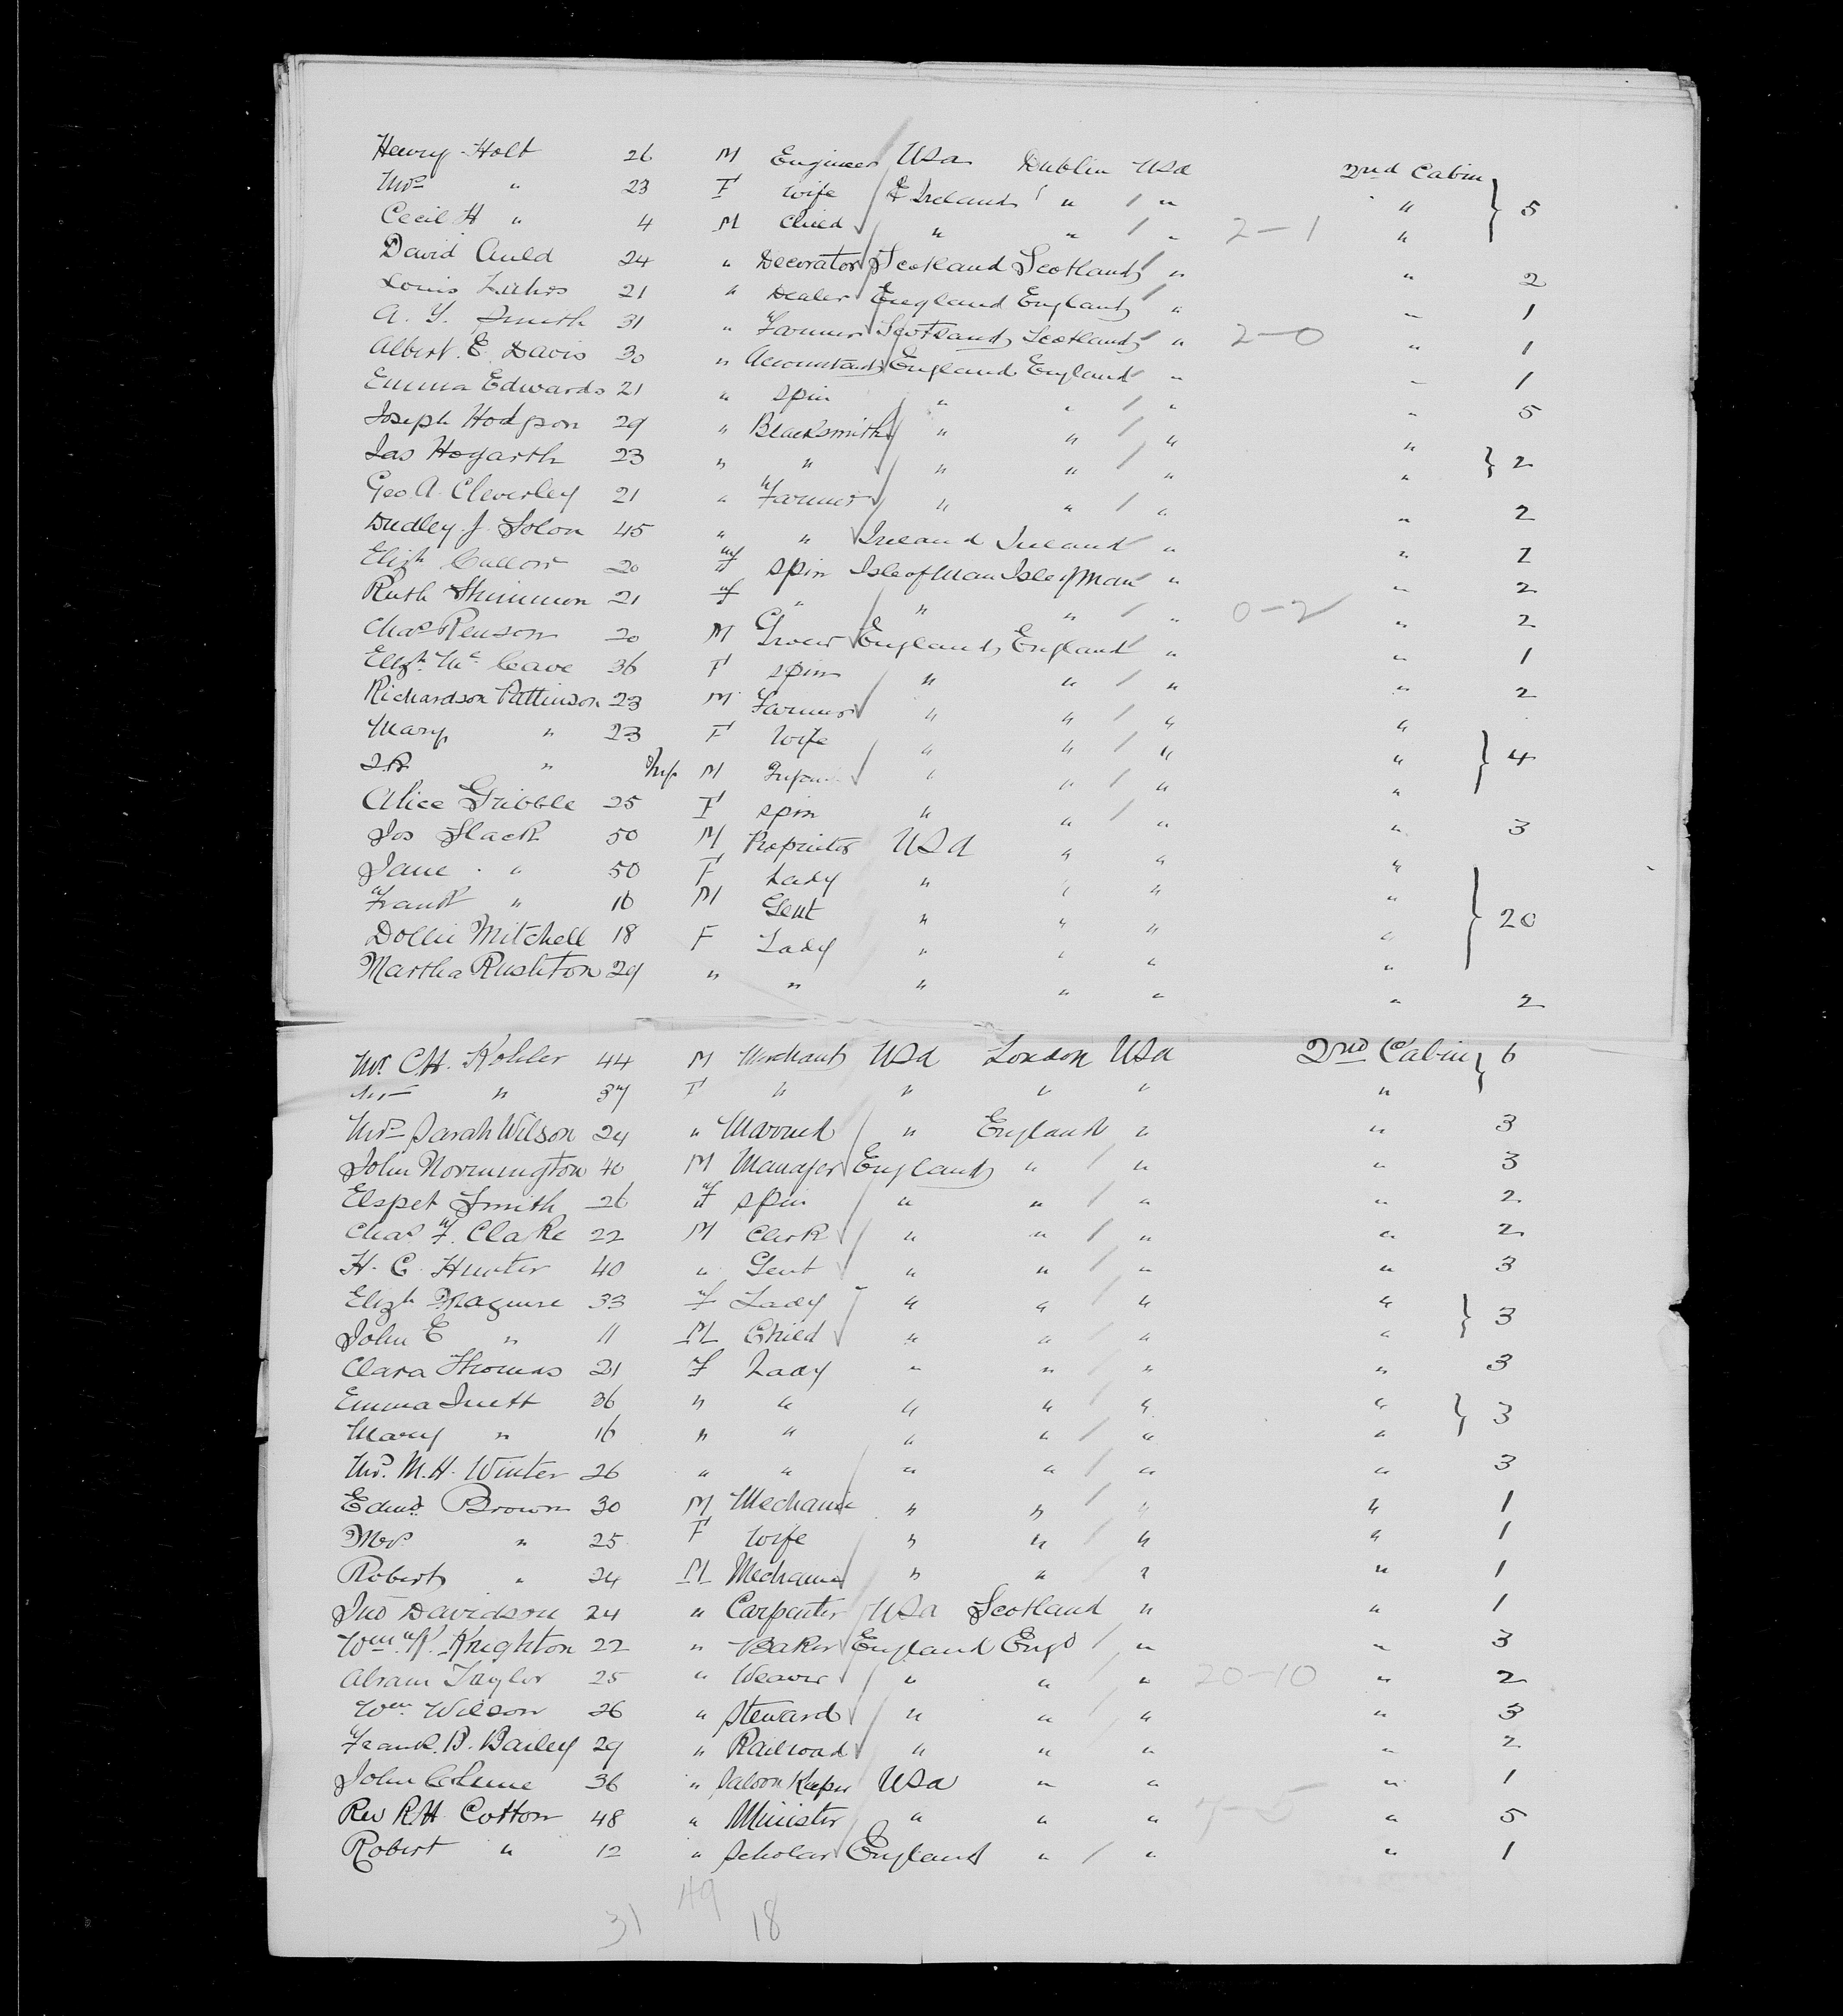 Henry Holt 26 M Engineer USA Dublin USA 2nd Cabin
Mrs " 23 F Wife Ireland " " " 5
Cecil H " 4 M Child " " " 2-1 "
David Auld 24 " Decorator Scotland Scotland " " 2
Louis 21 " Dealer England England " " 1
A. Y. Smith 31 " Farmer Scotland Scotland " 2-0 " 1
Albert E. Davis 30 " Accountant England England " " 1
Emma Edwards 21 " Spin " " " " 5
Joseph Hodgson 29 " Blacksmith " " " "
Jas Hogarth 23 " " " " " " 2
Geo. A. Cleverley 21 " Farmer " " " " 2
Dudley J. Solon 45 " " Ireland Ireland " " 2
Elizh Callow 20 F Spin Isle of Man Isle of Man " " 2
Ruth Skimmon 21 F " " " " 0-2 " 2
Chas Renson 20 M Grocer England England " " 1
Elizh Mc Cave 36 F Spin " " " " 2
Richardson Pattinson 23 M Farmer " " " "
Mary " 23 F Wife " " " " 4
" Inf M Infant " " " "
Alice Gribble 25 F Spin " " " " 3
Jos Slack 50 M Proprietor USA " " "
Jane " 50 F Lady " " " "
Frank " 16 M Gent " " " " 20
Dollie Mitchell 18 F Lady " " " "
Martha Rushton 29 " " " " " " 2
Mr. C.H. Kohler 44 M Merchant USA London USA 2nd Cabin 6
Mrs " 37 F " " " " "
Mrs Sarah Wilson 24 " Married " England " " 3
John Normington 40 M Manager England " " " 3
Elspet Smith 26 F Spin " " " " 2
Chas F. Clarke 22 M Clerk " " " " 2
H. C. Hunter 40 " Gent " " " " 3
Elizh Maguire 33 F Lady " " " " 3
John E " 11 M Child " " " "
Clara Thomas 21 F Lady " " " " 3
Emma Inett 36 " " " " " " 3
Mary " 16 " " " " " "
Mrs. M.H. Winter 26 " " " " " " 3
Edmd. Brown 30 M Mechanic " " " " 1
Mrs " 25 F Wife " " " " 1
Robert " 24 M Mechanic " " " " 1
Jno Davidson 24 " Carpenter USA Scotland " " 1
Wm K. Knighton 22 " Baker England Engd " " 3
Abram Taylor 25 " Weaver " " " 20-10 " 2
Wm Wilson 26 " Steward " " " " 3
Frank. B. Bailey 29 " Railroad " " " " 2
John 36 " Saloon Keeper USA " " " 1
Rev R.H. Cotton 48 " Minister " " " 7-5 " 5
Robert " 12 " Scholar England " " " 1
49
31 18